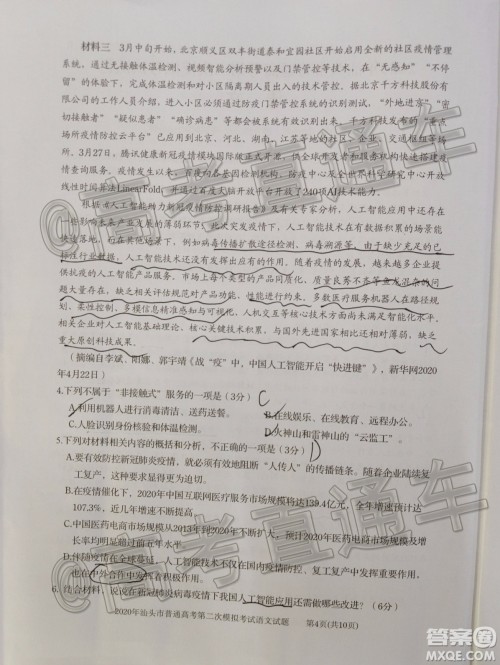 材料三 3月中旬开始，北京顺义区双丰街道泰和宜园社区开始启用全新的社区疫情管理
系统。通过无接触体温检测、视频智能分析预警以及门禁管控等技术，在“无感知”“不停
留”的体验下，完成体温检测和对小区隔离期人员出入的技术管控。据北京千方科技股份有
限公司的工作人员介绍，进入小区必须通过防疫门禁管控系统的识别测试，“外地进京”“密
切接触者”“疑似患者”“确诊患”等都会被系统有效识别出来。千方科技研发的“重点
场所疫情防控云平台”已应用到北京、河北、湖南、江苏等地的社区、企业、交通枢纽等场
所。3月27日，腾讯健康新冠疫情模块国际版正式开源，供全球开发者和服务机构快速搭建疫
情查询服务。疫情期间，百度向各基因检测机构、防疫中心及全世界科学研究中心开放
线性时间算法LinearFold，并通过百度大脑开放平台开放了240项AI技术能力。
《人工智能助力新冠疫情防控调研报告》及有关专家分析，人工智能应用中还存在
一些影响未来产业发展的薄弱环节。北大袁晓如介绍，人工智能技术在有些关键的场景能
快速落地，而在另外一些场景，例如病毒传播扩散途径检测、病毒溯源等，由于缺少充足的已
标注行业数据，人工智能技术还没有发挥出应有的作用。随着疫情的发展，越来越多企业提
供抗疫的人工智能产品服务，市场上每个类型的产品同质化、质量良莠不齐等鱼龙混杂的问
题大量存在，缺乏相关评估规范对产品功能、性能进行约束。多数医疗服务机器人在路径规
划、柔性控制、多模信息精准感知与可视化、人机交互等核心技术方面尚未满足智能化水平，
相关企业对人工智能基础理论、核心关键技术积累，与国外有关机构相比还相对薄弱，缺乏
重大原创科技成果。
（摘编自李斌、阳娜、郭宇靖《战“疫”中，中国人工智能开启“快进键”》，新华网2020
年4月22日）
4.下列不属于“非接触式”服务的一项是（3分） C
A.利用机器人进行消毒清洁、送药送餐。 B.在线娱乐、在线教育、远程办公。
C.人脸识别身份核验和体温检测。 D.火神山和雷神山的“云监工”。
5.下列对材料相关内容的概括和分析，不正确的一项是（3分） D
A.要有效防控新冠肺炎疫情，就必须有效地阻断“人传人”的传播链条。随着企业陆续复
工复产，这种需求显得更为迫切。
B.在疫情催化下，2020年中国互联网医疗服务市场规模将达139.4亿元，全年增速预计在
107.3%，近几年增速不断提升。
C.中国医药电商市场规模从2013年到2020年不断扩大，预计2020年医药电商市场规模及增
长率均明显超过前五年水平。
D.伴随疫情在全球蔓延，人工智能技术不仅在国内疫情防控、复工复产中发挥重要作用，
也在中外合作中发挥着积极作用。
6. 结合材料，说说在新冠病毒疫情下我国人工智能应用还需做哪些改进？（6分）
2020年汕头市普通高考第二次模拟考试语文试题 第4页(共10页)
高考直通车
高考直通车
答案圈